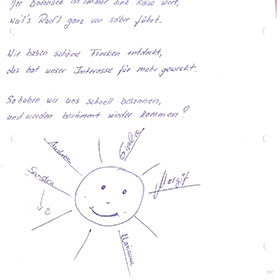 Der Bodensee ist immer eine Reise wert,
weil's Radl ganz vor selber fährt.
Wir haben schöne Flecken entdeckt,
das hat unser Interesse für mehr geweckt.
So haben wir uns schnell besonnen,
und werden bestimmt wieder kommen!
Andrea
Sandra
Margit
Marianne